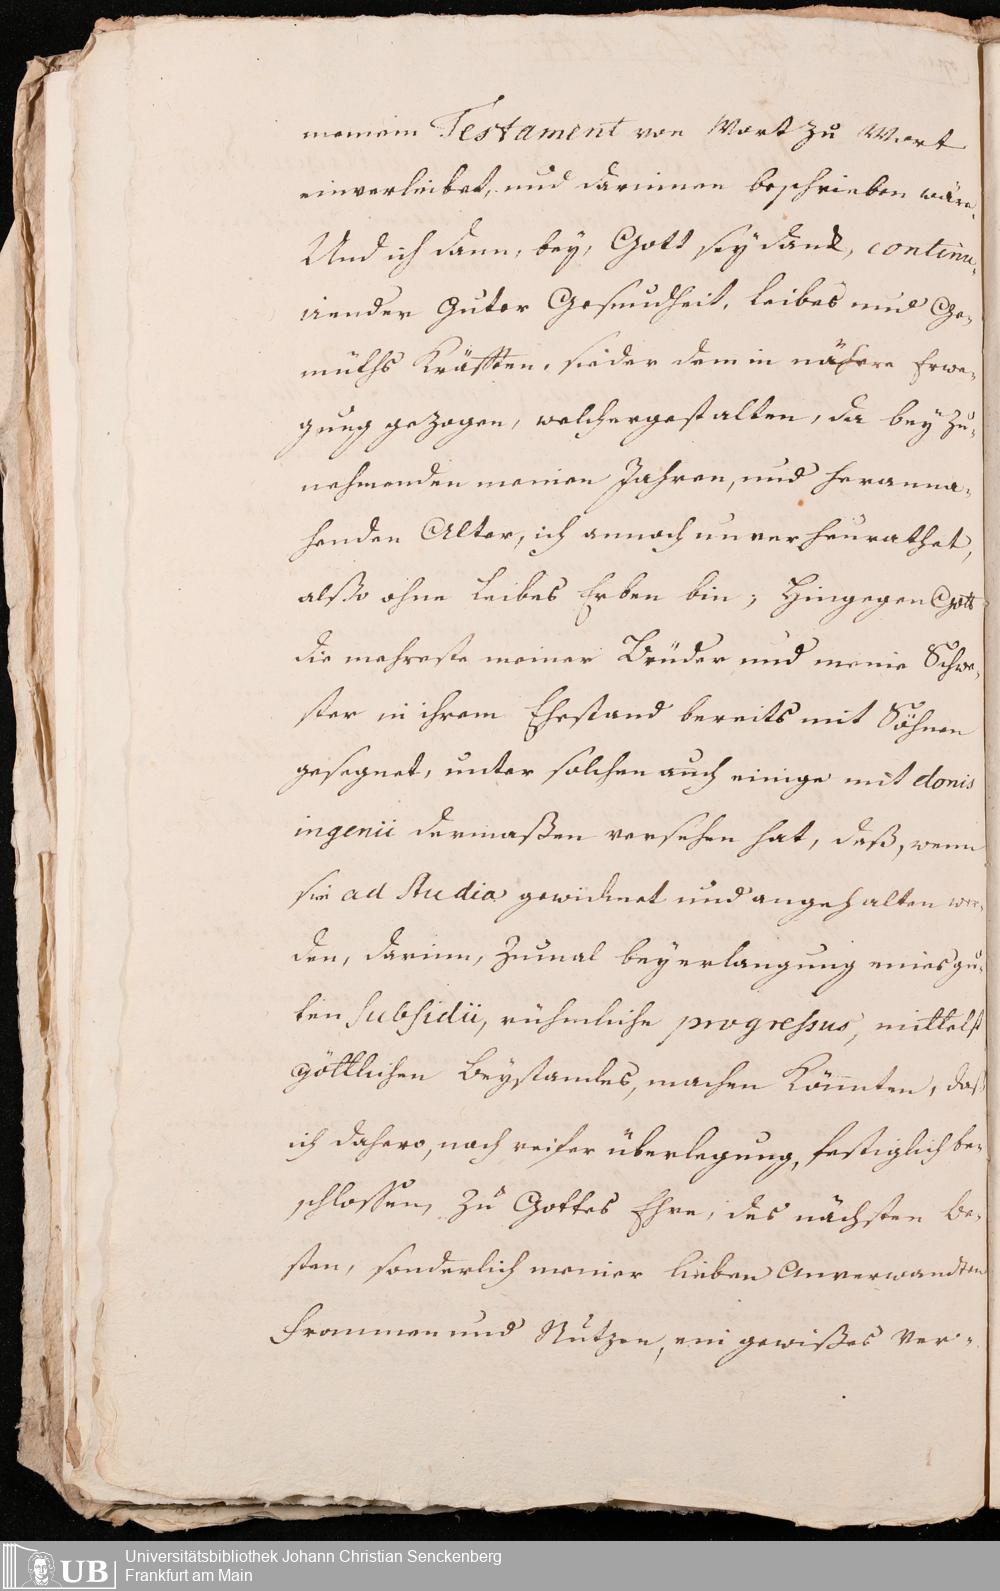 meinem Testament von Wort zu Wort
einverleibet, und darinnen beschrieben wäre.
Und ich dann, bey, Gott sey dank, continu-
irender guter Gesundheit, Leibes und Ge-
müths Kräfften, sieder dem in nähere Erwe-
gung gezogen, welchergestalten, da bey zu-
nehmenden meinen Jahren, und heranna-
henden Alter, ich annoch unverheurathet,
alßo ohne Leibes Erben bin; Hingegen Gott
die mehreste meiner Brüder und meine Schwe-
ster in ihrem Ehestand bereits mit Söhnen
gesegnet, unter solchen auch einige mit donis
ingenii dermaßen versehen hat, daß, wenn
sie ad Studia gewidmet und angehalten wer-
den, darinn, zumal bey erlangung eines gu-
ten Subsidii, rühmliche progressus, mittelst
göttlichen Beystandes, machen könnten, daß
ich dahero, nach reifer überlegung, festiglich be-
schlossen, zu Gottes Ehre, des nächsten Be-
sten, sonderlich meiner lieben Anverwandten
Frommen und Nutzen, ein gewißes Ver-
UB
Universitätsbibliothek Johann Christian Senckenberg
Frankfurt am Main